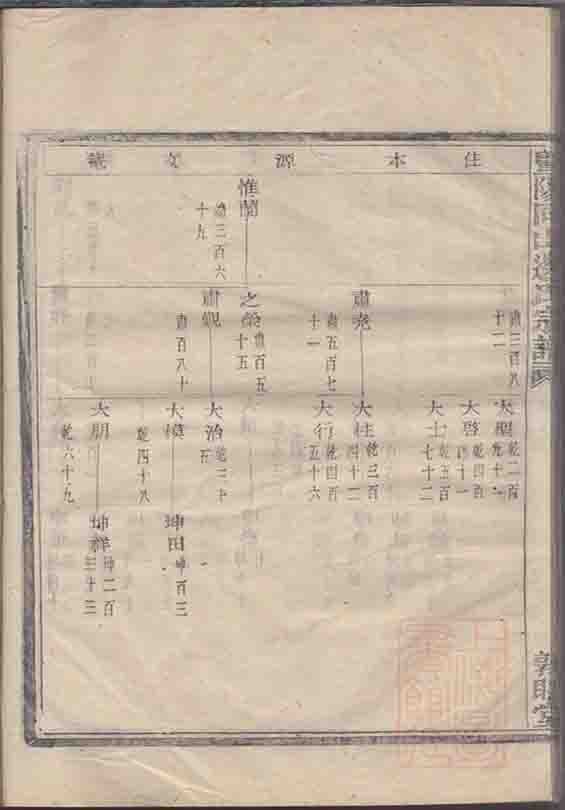 陽同山邊氏宗譜
敦睦堂
住 本 源 文
惟蘭
肅三百六十九
肅三百八十二
肅堯
肅五百七十一
之榮 肅百五十五
肅觀
肅百八十
大聖 乾二百九十
大啓 乾四百四十一
大士 乾五百七十二
大柱 乾三百四十二
大行 乾四百五十六
大治 乾二十五
大模
乾四十八
大朋
乾六十九
坤田 坤百三
坤祥 坤二百三十三
上海圖書館藏